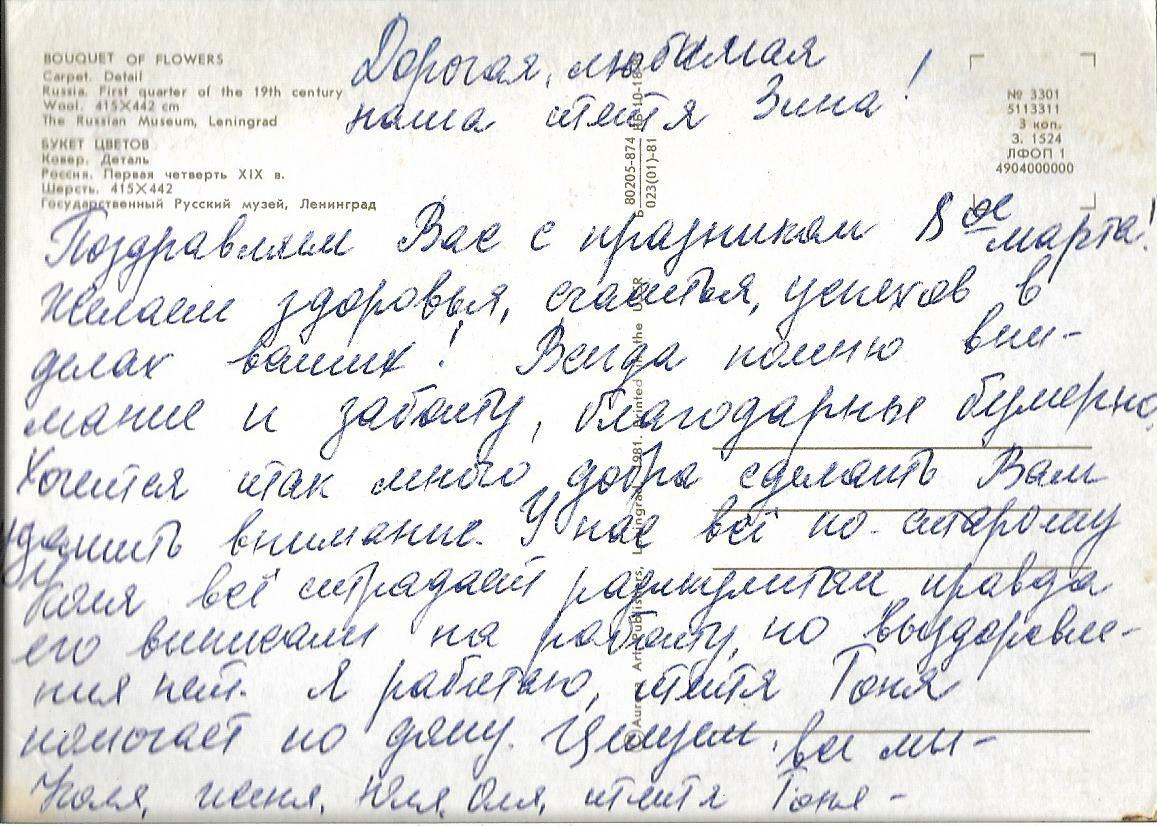 BOUQUET OF FLOWERS
Carpet. Detail
Russia. First quarter of the 19th century
Wool. 415×442 cm
The Russian Museum, Leningrad
БУКЕТ ЦВЕТОВ
Ковер. Деталь
Россия. Первая четверть XIX в.
Шерсть. 415×442
Государственный Русский музей, Ленинград
№ 3301
5113311
3 коп.
З. 1524
ЛФОП 1
4904000000
Дорогая, любимая
наша тётя Зина!
Поздравляем Вас с праздником 8ое марта!
Желаем здоровья, счастья, успехов в
делах ваших! Всегда помню вни-
мание и заботу, благодарны безмерно.
Хочется так много добра сделать Вам
уделить внимание. У нас всё по-старому
Коля всё страдает радикулитом правда
его выписали на работу, но выздоровле-
ния нет. Я работаю, тётя Тоня
помогает по дому. Целуем, все мы-
Коля, Женя, Юля, Оля, тётя Тоня-
Б 80205-874
023(01)-81
© Aurora Art Publishers, Leningrad, 1981. Printed in the USSR